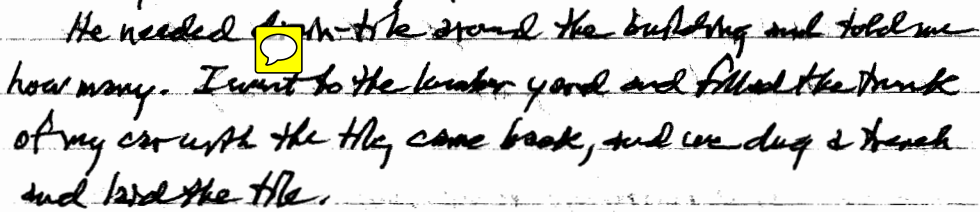 He needed drain-tile around the building and told me
how many. I went to the lumber yard and filled the trunk
of my car with the tile, came back, and we dug a trench
and laid the tile.